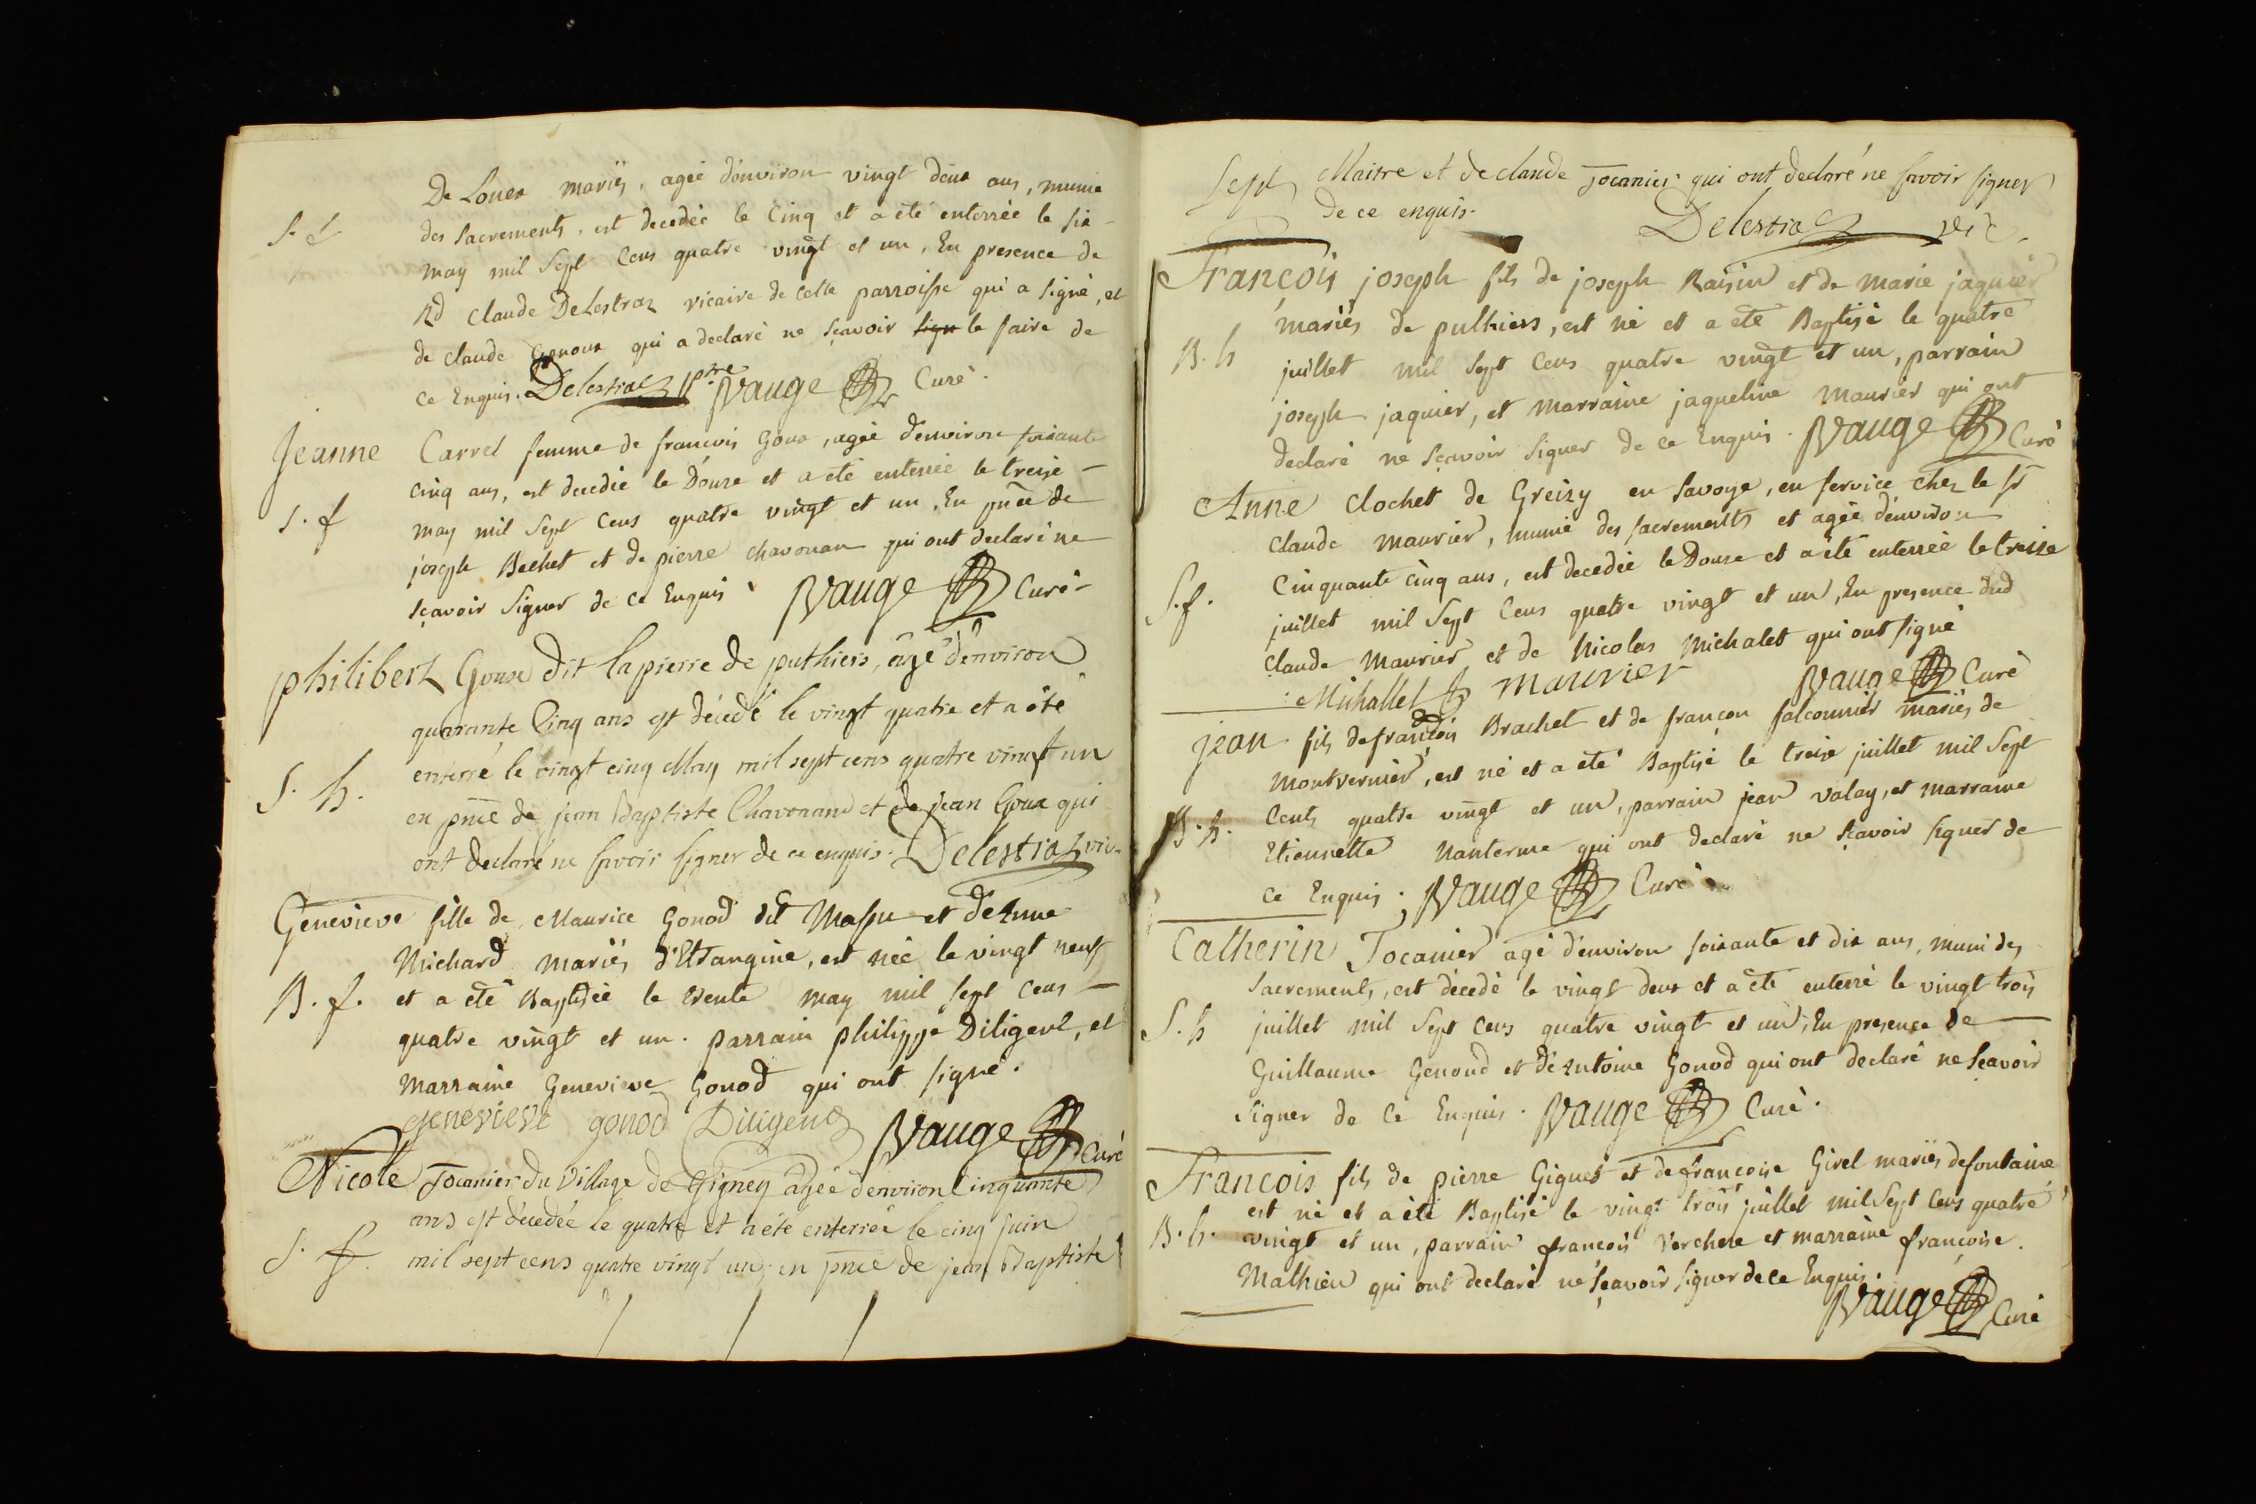 De Louer mariés, agée d'environ vingt deux ans, munie
S. f
des sacrements, est decedée le Cinq et a été enterrée le six
may mil sept Cens quatre vingt et un, En presence de
Rd Claude Delestraz vicaire de cette parroisse qui a signé, et
de claude Genoux qui a declaré ne sçavoir sign le faire de
ce Enquis. Delestraz ptre Vauge Curé.
Jeanne Carrel femme de francois Goux, agée d'environ soixante
cinq ans, est decedée le Douze et a été enterrée le treize
S. f
may mil sept Cens quatre vingt et un, En pnce de
joseph Bechet et de pierre chavonan qui ont declaré ne
sçavoir signer de ce Enquis Vauge Curé
philibert Goux dit lapierre de puthiers, âgé d'environ
quarante Cinq ans est décedé le vingt quatre et a été
S. h.
enterré le vingt cinq May mil sept cens quatre vingt un
en pnce de jean Baptiste Chavonand et de jean Goux qui
ont declaré ne savoir signer de ce enquis. Delestraz vic.
Genevieve fille de Maurice Gonod dit Massu et d'Anne
Michard mariés d'Etrangine, est née le vingt neuf
B. f.
et a été Baptisée le trente may mil sept Cens
quatre vingt et un. parrain philippe Diligent, et
marraine Genevieve Gonod qui ont signé.
genevieve gonod Diligent Vauge Curé
Nicole Jocanier du village de Gigney agée d'environ Cinquante
ans est décedée le quatre et a été enterrée le cinq juin
S. f.
mil sept cens quatre vingt un, en pnce de jean Baptiste
Sept Maitre et de claude Jocanier qui ont declaré ne savoir signer
de ce enquis. Delestraz vic.
François joseph fils de joseph Raisin et de marie jaquier
mariés de puthiers, est né et a été Baptisé le quatre
B. h
juillet mil sept Cens quatre vingt et un, parrain
joseph jaquier, et marraine jaqueline maurier qui ont
declaré ne sçavoir signer de ce Enquis. Vauge Curé
Anne Clochet de Greizy en savoye, en service chez le sr
claude maurier, munie des sacrements et agée d'environ
S. f.
Cinquante cinq ans, est decedée le Douze et a été enterrée le treize
juillet mil sept Cens quatre vingt et un, En presence dud
claude maurier et de Nicolas Michalet qui ont signé
Michallet maurier Vauge Curé
jean fils de francois Brachet et de françon falconnier mariés de
montvernier, est né et a été Baptisé le treize juillet mil sept
B. h.
Cents quatre vingt et un, parrain jean valay, et marraine
Etiennette Nanterme qui ont declaré ne sçavoir signer de
ce Enquis. Vauge Curé
Catherin Jocanier agé d'environ soixante et dix ans, muni des
sacrements, est décedé le vingt deux et a été enterré le vingt trois
S. h
juillet mil sept Cens quatre vingt et un, En presence de
Guillaume Genoud et d'Antoine Gonod qui ont declaré ne sçavoir
signer de ce Enquis. Vauge Curé.
Francois fils de pierre Giguet et de francoise Girel mariés de fontaine
est né et a été Baptisé le vingt trois juillet mil sept Cens quatre
B. h.
vingt et un, parrain francois Verchere et marraine françoise
Mathieu qui ont declaré ne sçavoir signer de ce Enquis.
Vauge Curé